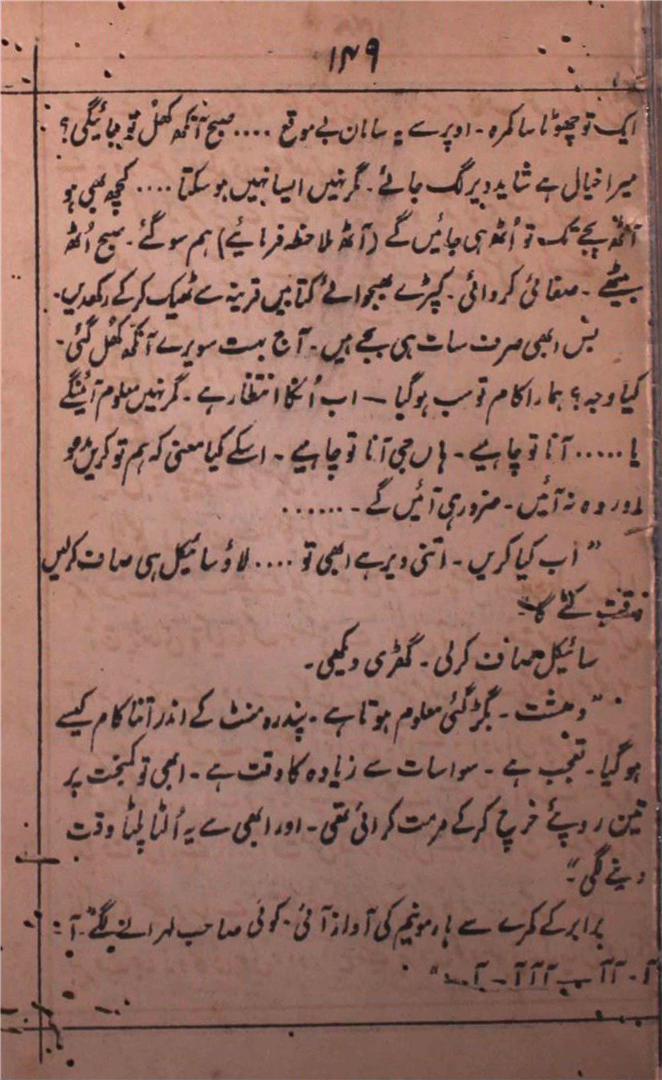 ۱۴۹
ایک تو چھوٹا سا کمرہ۔ اوپر سے یہ سامان بے موقع .... صبح آنکھ کھل تو جائیگی؟
میرا خیال ہے شاید دیر لگ جائے۔ مگر نہیں ایسا نہیں ہو سکتا .... کچھ بھی ہو
آٹھ بجے تک تو اُٹھ ہی جائیں گے (آٹھ ملاحظہ فرمائیے) ہم سو گئے۔ صبح اُٹھ
بیٹھے۔ صفائی کروائی۔ کپڑے بھجوائے کتابیں قرینہ سے ٹھیک کر کے رکھدیں۔
بس ابھی صرف سات ہی بجے ہیں۔ آج بہت سویرے آنکھ کھل گئی۔
کیا وجہ؟ ہمارا کام تو سب ہو گیا — اب اُنکا انتظار ہے۔ مگر نہیں معلوم آئینگے
یا ..... آنا تو چاہیے۔ ہاں جی آنا تو چاہیے۔ اسکے کیا معنی کہ ہم تو کریں
اور وہ نہ آئیں۔ ضرور ہی آئیں گے۔ ......
"اب کیا کریں۔ اتنی دیر ہے ابھی تو .... لاؤ سائیکل ہی صاف کرلیں
وقت کٹے گا"
سائیکل صاف کرلی۔ گھڑی دیکھی۔
"دہشت۔ بگڑ گئی معلوم ہوتا ہے۔ پندرہ منٹ کے اندر اتنا کام کیسے
ہو گیا۔ تعجب ہے۔ سوا سات سے زیادہ کا وقت ہے۔ ابھی تو کمبخت پر
تین روپئے خرچ کر کے مرمت کرائی تھی۔ اور ابھی سے یہ اُلٹا پلٹا وقت
دینے لگی۔"
برابر کے کمرے سے ہارمونیم کی آواز آئی۔ کوئی صاحب لہرانے لگے "۔ آ۔
آ۔ آ آ آ آ آ۔ آ۔"